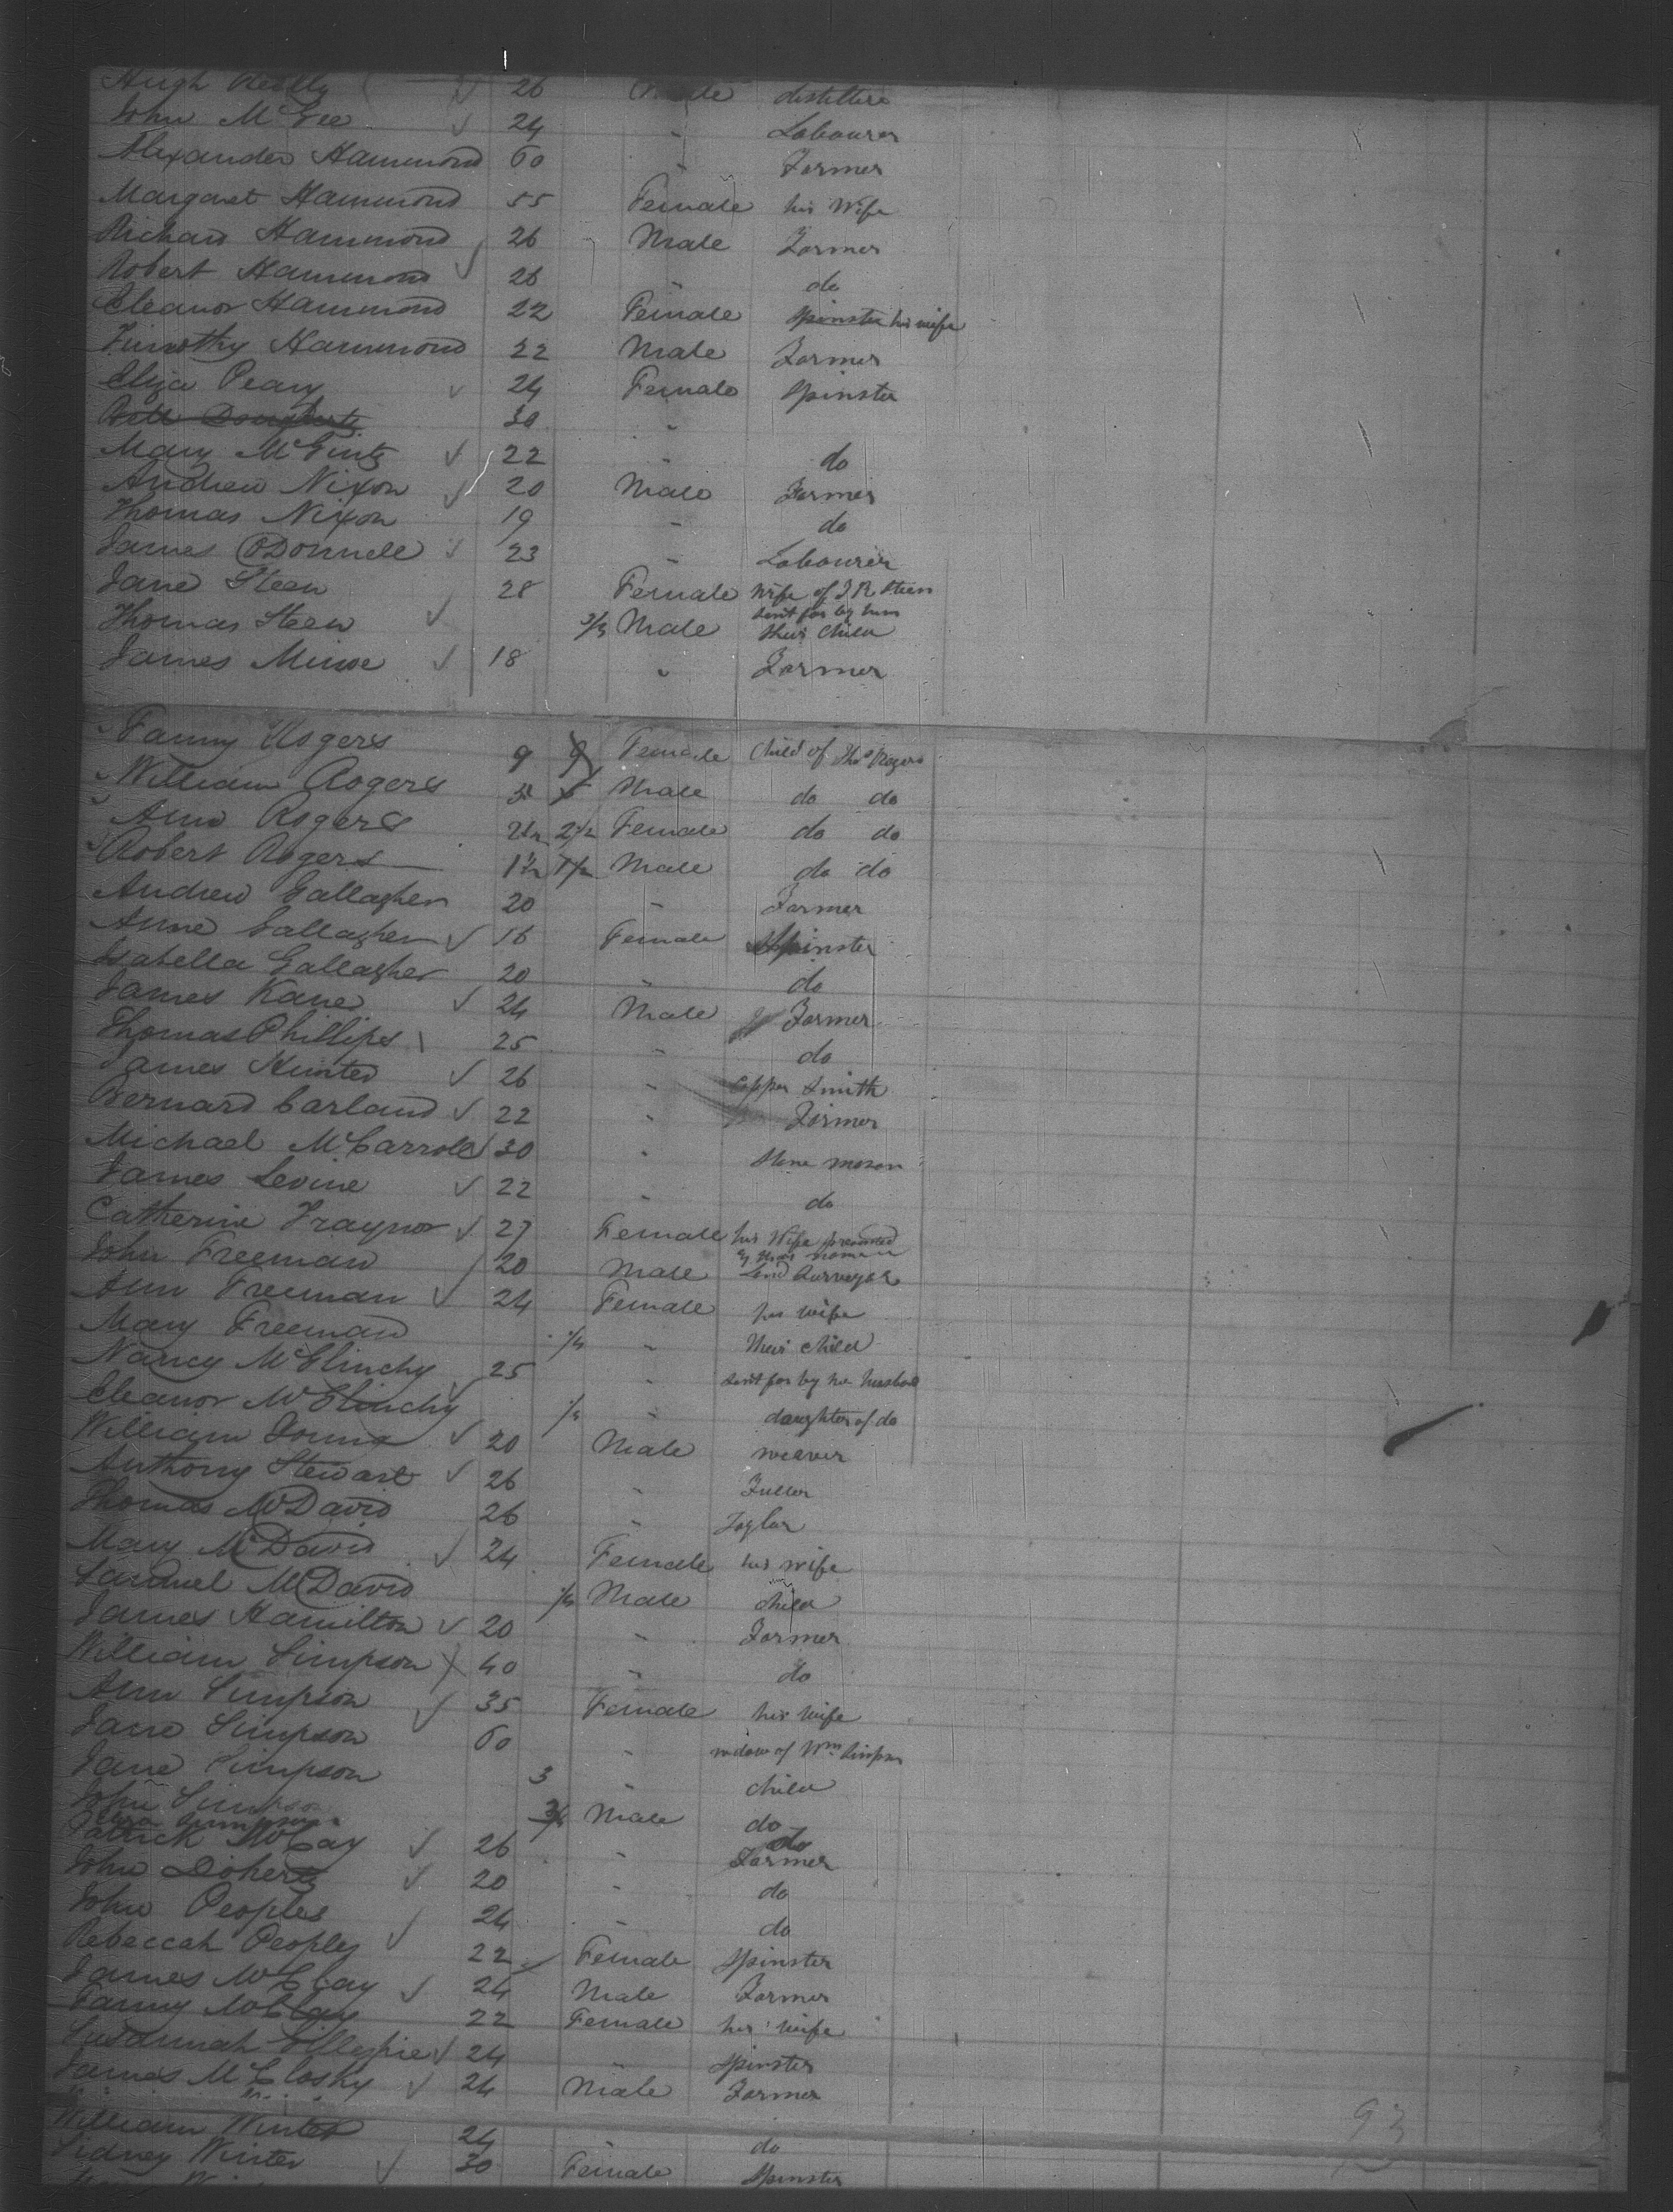 Hugh Reilly 26 Male distiller
John McGee 24 " Labourer
Alexander Hammond 60 " Farmer
Margaret Hammond 55 Female his Wife
Richard Hammond 26 Male Farmer
Robert Hammond 26 " do
Eleanor Hammond 22 Female spinster his wife
Timothy Hammond 22 Male Farmer
Eliza Peary 24 Female Spinster
30 "
Mary McGinty 22 " do
Andrew Nixon 20 Male Farmer
Thomas Nixon 19 " do
James ODonnell 23 " Labourer
Jane Steen 28 Female wife of J R Steen
sent for by him
Thomas Steen Male their child
James 18 " Farmer
Fanny Rogers 9 9 Female Child of Thos Rogers
William Rogers Male do do
Ann Rogers 2½ 2½ Female do do
Robert Rogers 1½ 1½ Male do do
Andrew Gallagher 20 " Farmer
Anne Gallagher 16 Female Spinster
Isabella Gallagher 20 " do
James Kane 24 Male Farmer
Thomas Phillips 25 " do
James Hunter 26 " Copper Smith
Bernard Carland 22 " Farmer
Michael McCarroll 30 " Stone mason
James Levine 22 " do
Catherine Traynor 27 Female his Wife
John Freeman 20 Male Land Surveyor
Ann Freeman 24 Female his wife
Mary Freeman " their child
Nancy McGlinchy 25 " sent for by her husband
Eleanor McGlinchy " daughter of do
William Young 20 Male weaver
Anthony Stewart 26 " Fuller
Thomas McDavid 26 " Taylor
Mary McDavid 24 Female his wife
Samuel McDavid Male child
James Hamilton 20 " Farmer
William Simpson 40 " do
Ann Simpson 35 Female his wife
Jane Simpson 60 " widow of Wm Simpson
Jane Simpson 3 " child
John Simpson Male do
do
Patrick McCay 26 " Farmer
John Doherty 20 " do
John Peoples 24 " do
Rebeccah Peoples 22 Female Spinster
James McClay 24 Male Farmer
Fanny McClay 22 Female his wife
Susannah Gillespie 24 " spinster
James McClosky 24 Male Farmer
William Winter 24 " do
Sidney Winter 30 Female Spinster
93